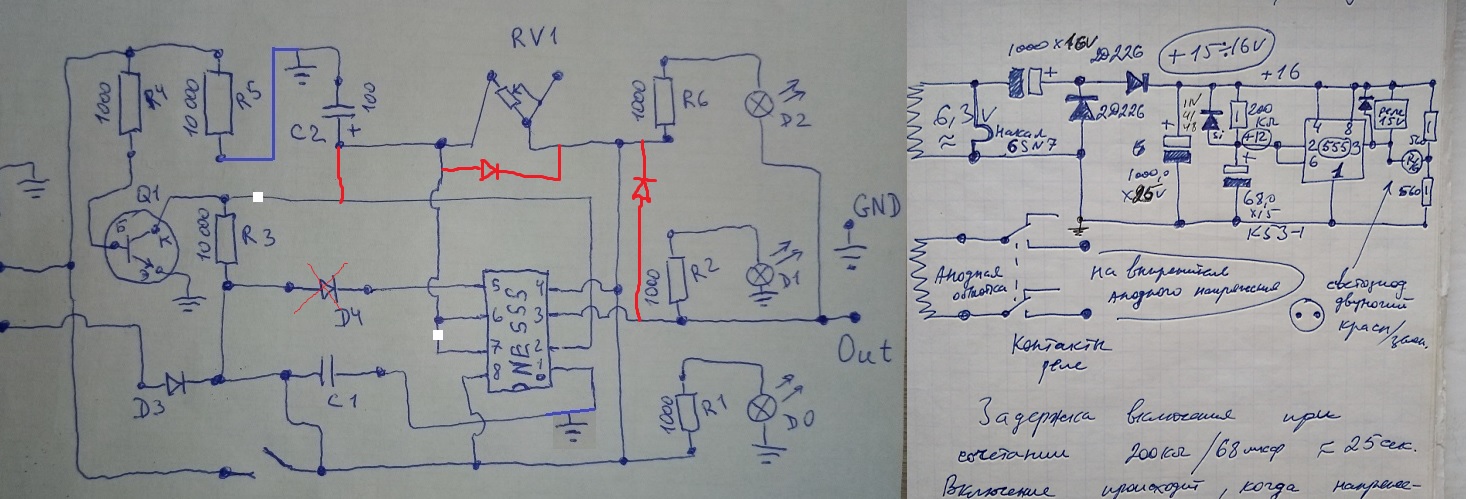 RV1
1000
R4
10 000
R5
100
C2
+
1000
R6
D2
Q1
Б
К
Э
10 000
R3
GND
D4
5
6
7
8
NE 555
4
3
2
1
1000
R2
D1
Out
D3
C1
1000
R1
D0
1000 x 16V
+
2Д226
+15÷16V
+16
6,3 V
≈
Накал
6SN7
2Д226
+
1000,0
x 25V
1N
41
48
200
КΩ
+12
+
68,0
x15
K53-1
4
8
2
6
555
3
1
реле
15V
560
Анодная
обмотка
на выпрямитель
анодного напряжения
Контакты
реле
светодиод
двуногий
красн/зелен.
Задержка включения при
сочетании 200кΩ/68мкф ≈ 25 сек.
Включение происходит, когда напряже-